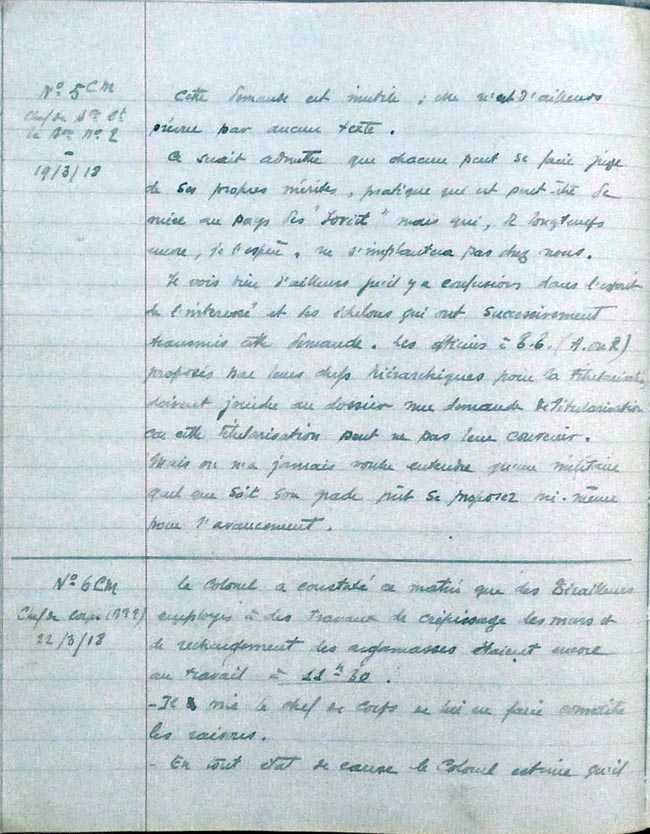 N° 5 CM
Chef de
19/3/18
Cette demande est inutile ; elle n'est d'ailleurs
prévue par aucun texte.
Ce serait admettre que chacun peut se faire juge
de ses propres mérites, pratique qui est peut-être de
mise au pays des "Soviet" mais qui, de longtemps
encore, je l'espère, ne s'implantera pas chez nous.
Je vois bien d'ailleurs qu'il y a confusion dans l'esprit
de l'intéressé et des échelons qui ont successivement
transmis cette demande. Les officiers à T.T. (A. ou R)
proposés par leurs chefs hiérarchiques pour la titularisation
doivent joindre au dossier une demande de titularisation
car cette titularisation peut ne pas leur convenir.
Mais on n'a jamais voulu entendre qu'un militaire
quel que soit son grade pût se proposer lui-même
pour l'avancement.
N° 6 CM
Chef de Corps
22/3/18
Le Colonel a constaté ce matin que des Tirailleurs
employés à des travaux de crépissage des murs et
de rechargement des argamasses étaient encore
au travail à 11h30.
- Il prie le chef de corps de lui en faire connaître
les raisons.
- En tout état de cause le Colonel estime qu'il